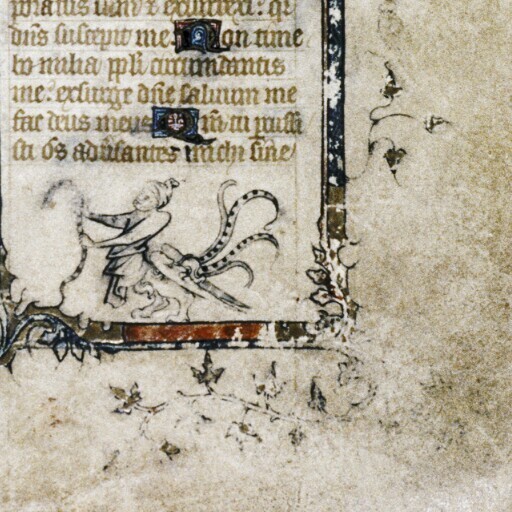 dñs suscepit me. Non time
bo milia ppl̄i circumdantis
me: exsurge dñe saluum me
fac deus meus Qm̄ tu ꝑcussi
sti oēs aduſantes michi sine